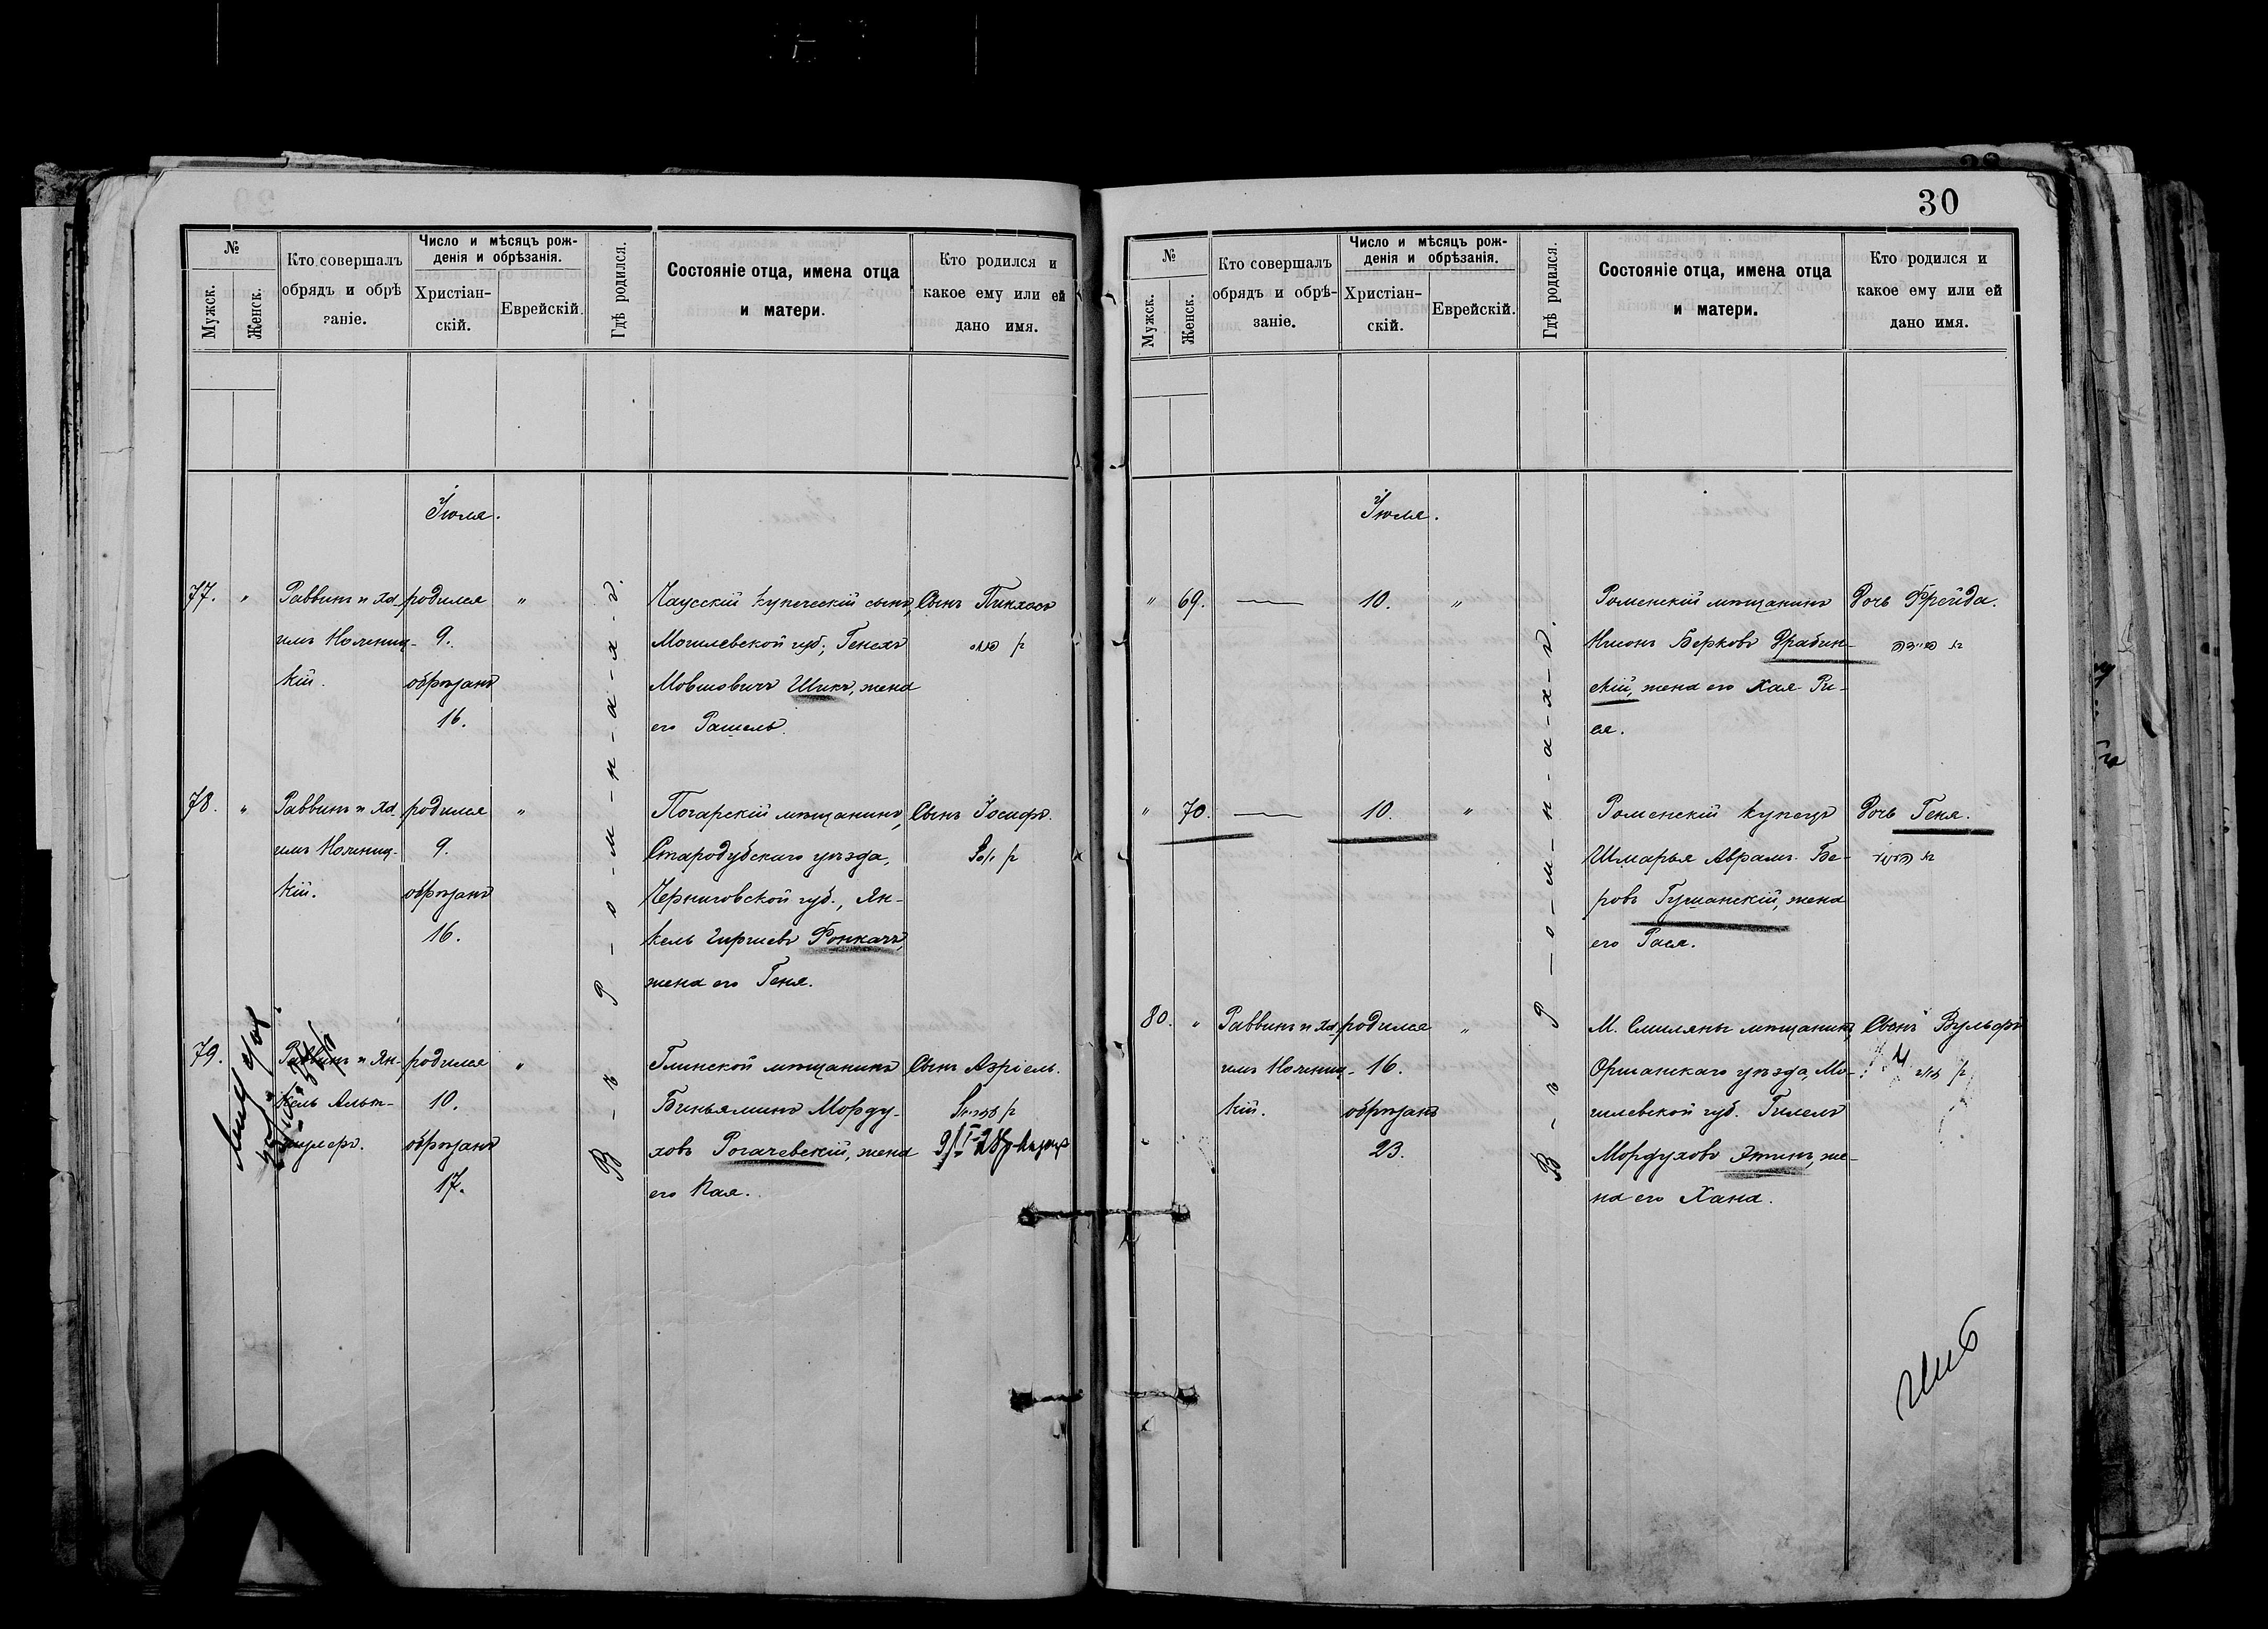 30
№
Мужск.
Женск.
Кто совершалъ
обрядъ и обрѣ
заніе.
Число и мѣсяцъ рож-
денія и обрѣзанія.
Христіан-
скій.
Еврейскій.
Гдѣ родился.
Состояніе отца, имена отца
и матери.
Кто родился и
какое ему или ей
дано имя.
Іюля.
В - ъ - Р - о - м - н - а - х - ъ.
77. "
Раввинъ и Ха-
имъ Нолениц-
кій.
родился
9.
обрѣзанъ
16.
"
Чаусскій купеческій сынъ,
Могилевской губ., Генехъ
Мовшовичъ Шикъ, жена
его Рашель.
Сынъ Пинхасъ
78. "
Раввинъ и Ха-
имъ Нолениц-
кій.
родился
9.
обрѣзанъ
16.
"
Погарскій мѣщанинъ,
Стародубскаго уѣзда,
Черниговской губ., Ян-
кель Гиршевъ Фонкачъ,
жена его Геня.
Сынъ Іосифъ.
79.
Раввинъ и Ян-
кель Альт-
шулеръ.
родился
10.
обрѣзанъ
17.
"
Глинской мѣщанинъ
Биньяминъ Морду-
ховъ Рогачевскій, жена
его Хая.
Сынъ Азріель.
№
Мужск.
Женск.
Кто совершалъ
обрядъ и обрѣ-
заніе.
Число и мѣсяцъ рож-
денія и обрѣзанія.
Христіан-
скій.
Еврейскій.
Гдѣ родился.
Состояніе отца, имена отца
и матери.
Кто родился и
какое ему или ей
дано имя.
Іюля.
В - ъ - Р - о - м - н - а - х - ъ.
" 69. —
10.
"
Роменскій мѣщанинъ
Нисонъ Берковъ Драбин-
скій, жена его Хая Ри-
ся.
Дочь Фрейда.
" 70. —
10.
"
Роменскій купецъ
Шмарья Аврамъ Бе-
ровъ Гушанскій, жена
его Рася.
Дочь Геня.
80. "
Раввинъ и Ха-
имъ Нолениц-
кій.
родился
16.
обрѣзанъ
23.
"
М. Смиляны мѣщанинъ,
Оршанскаго уѣзда, Мо-
гилевской губ. Гилель
Мордуховъ Этинъ, же-
на его Хана.
Сынъ Вульфъ